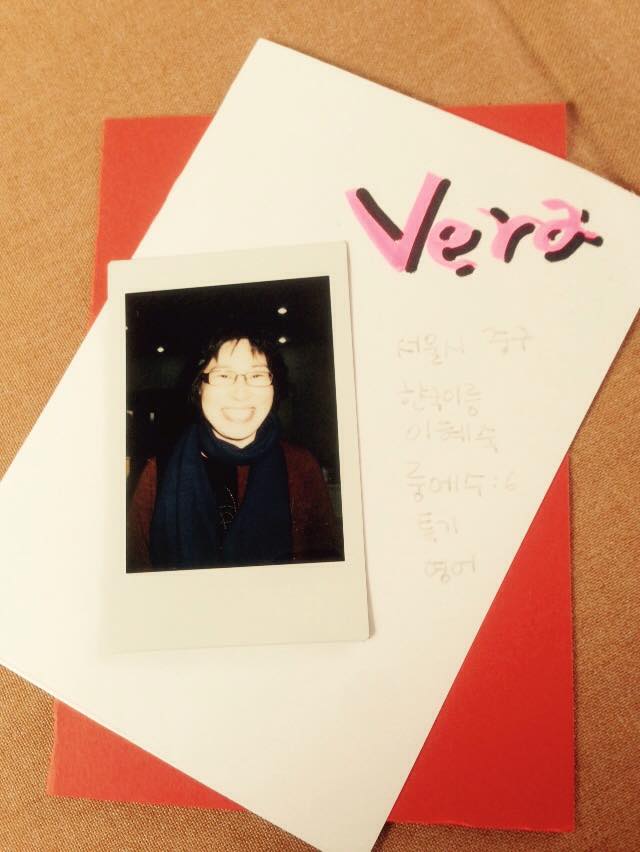 Vera
서울시 중구
한국이름
이혜숙
특기
영어